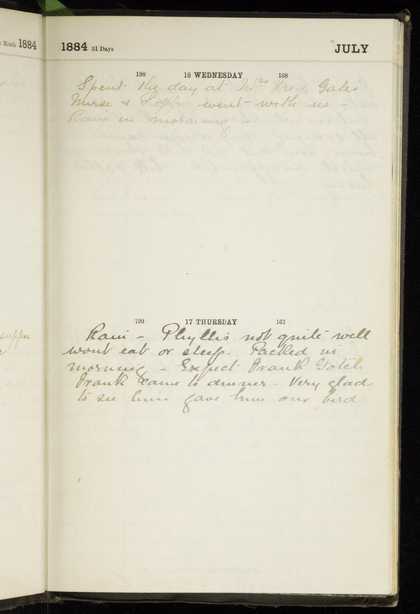 7th Month 1884
1884 31 Days JULY
198 16 WEDNESDAY 168
Spent the day at Mrs Fred Gales
Nurse & went with us -
Rain in morning
supper
199 17 THURSDAY 167
Rain - Phyllis not quite well
wont eat or sleep. Packed in
morning - Expect Frank Gotch
Frank came to dinner - Very glad
to see him gave him our bird